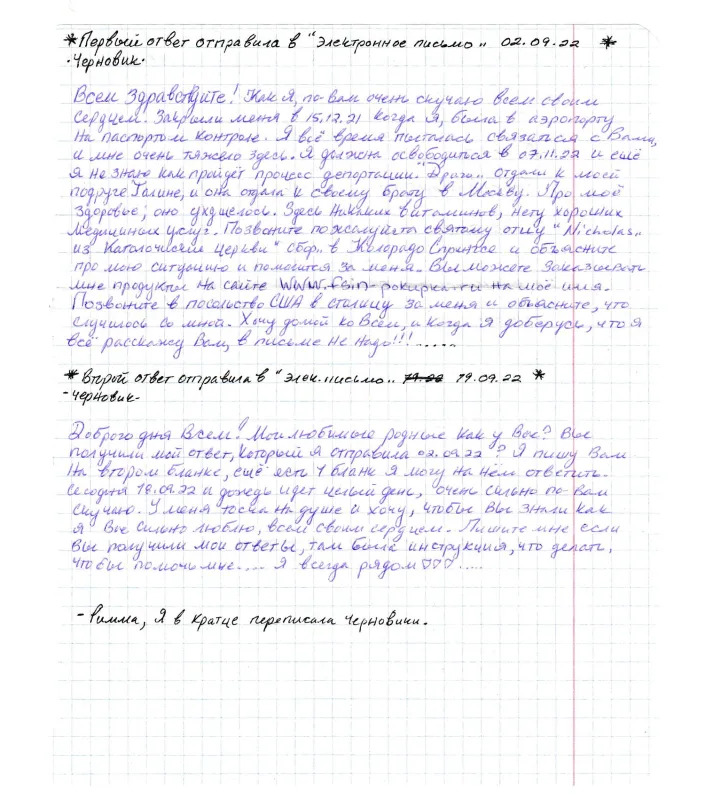 *Первый ответ отправила в "Электронное письмо" 02.09.22 *
·Черновик·
Всем Здравствуйте! Как Я, по-вам очень скучаю всем своим
сердцем. Закрыли меня в 15.12.21 когда Я, была в аэропорту
на паспортом контроле. Я всё время пыталась связаться с Вами,
и мне очень тяжело здесь. Я должна освободиться в 07.11.22 и ещё
я не знаю как пройдёт процесс депортации. отдали к моей
подруге Галине, и она отдала к своему брату в Москву. Про моё
здоровье; оно ухудшелось. Здесь никаких витаминов, нету хороших
медициных услуг. Позвоните пожалуйста святому отцу "Nicholas"
из Католочиской церкви" в Колорадо Спрингсе и объясните
про мою ситуацию и помолится за меня. Вы можете заказывать
мне продукты на сайте www.fsin-pokupka.ru на моё имя.
Позвоните в посольство США в столицу за меня и объясните, что
случилось со мной. Хочу домой ко Всем, и когда Я доберусь, что Я
всё расскажу Вам, в письме не надо!!!......
*Второй ответ отправила в "Элек.письмо" 19.09.22 *
-черновик-
Доброго дня Всем! Мои любимые родные как у Вас? Вы
получили мой ответ, который Я отправила 02.09.22? Я пишу Вам
на втором бланке, ещё есть 1 бланк Я могу на нём ответить.
Сегодня 18.09.22 и дождь идет целый день, очень сильно по-Вам
скучаю. У меня тоска на душе и хочу, чтобы Вы знали как
Я Вас сильно люблю, всем своим сердцем. Пишите мне если
Вы получили мои ответы, там была инструкция, что делать,
чтобы помочь мне.... Я всегда рядом ♡♡♡.....
-Римма, Я в кратце переписала черновики.